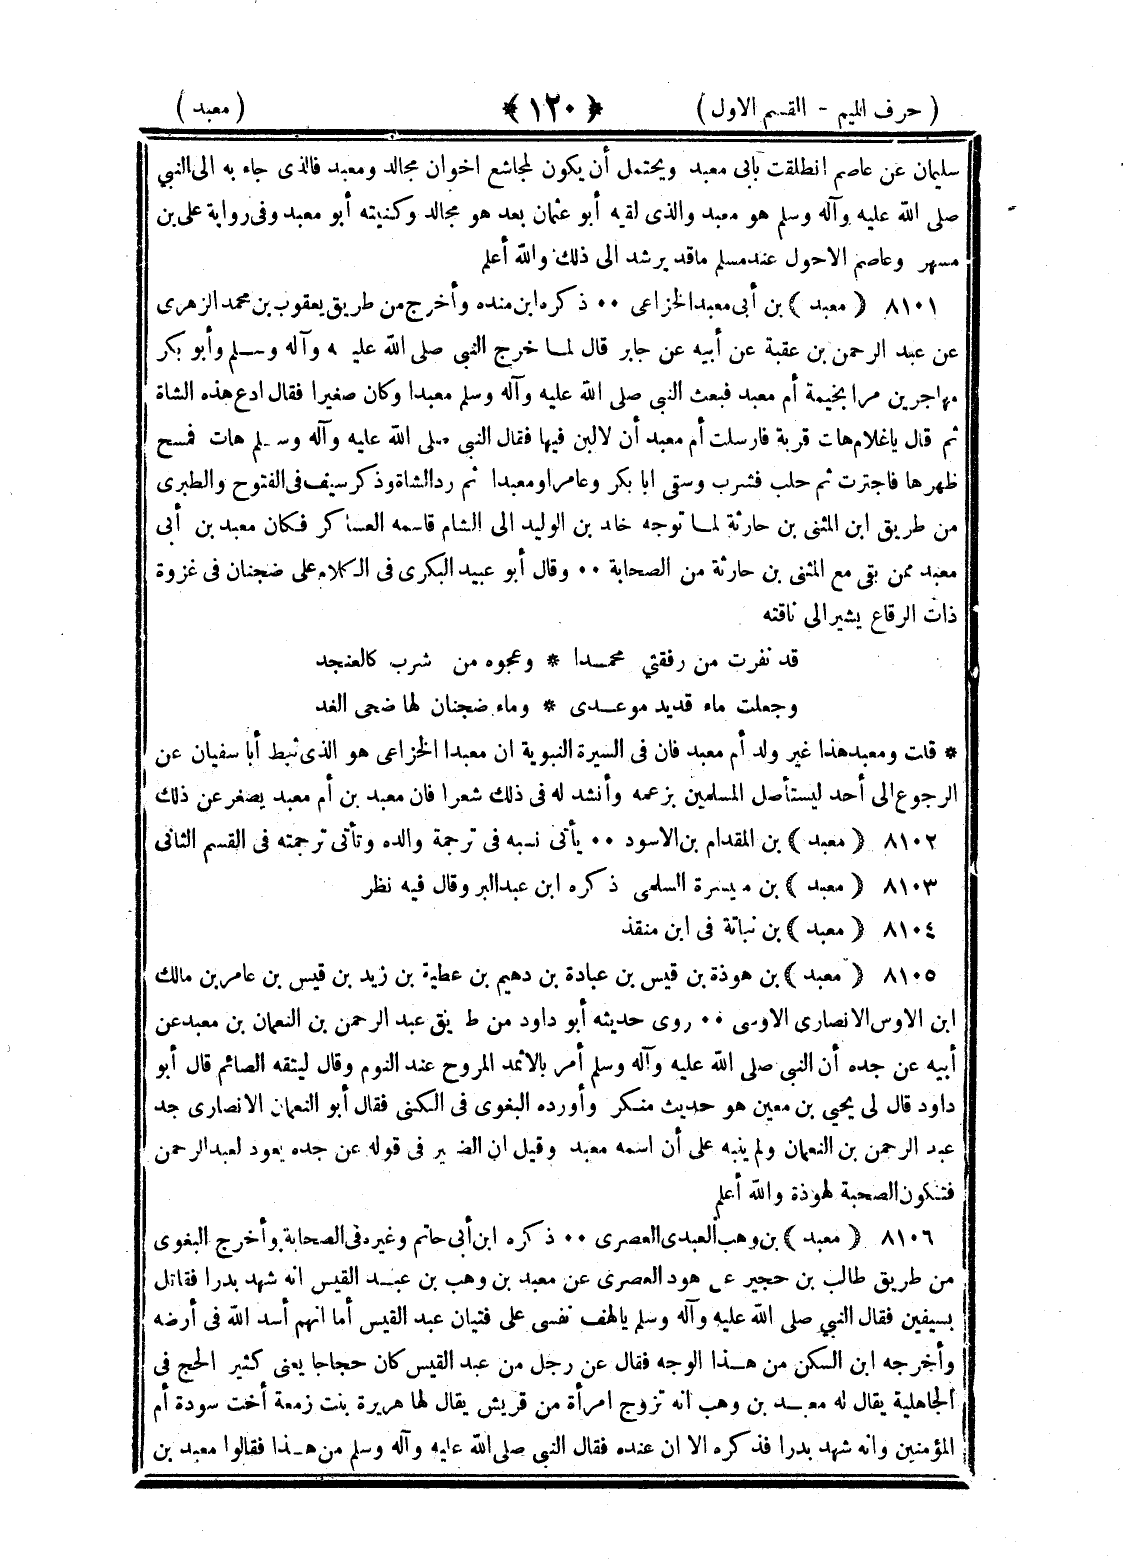 ( حرف الميم - القسم الاول ) ﴿ ١٢٠ ﴾ ( معبد )
سليمان عن عاصم انطلقت بأبى معبد ويحتمل أن يكون لمجاشع اخوان مجالد ومعبد فالذى جاء به الى النبي
صلى الله عليه وآله وسلم هو معبد والذى لقيه أبو عثمان بعد هو مجالد وكنيته أبو معبد وفى رواية على بن
مسهر وعاصم الاحول عند مسلم ما قد يرشد الى ذلك والله أعلم
٨١٠١ ﴿ معبد ﴾ بن أبى معبد الخزاعى ٠٠ ذكره ابن منده وأخرج من طريق يعقوب بن محمد الزهرى
عن عبد الرحمن بن عقبة عن أبيه عن جابر قال لما خرج النبى صلى الله عليه وآله وسلم وأبو بكر
مهاجرين مرا بخيمة أم معبد فبعث النبى صلى الله عليه وآله وسلم معبدا وكان صغيرا فقال ادع هذه الشاة
ثم قال ياغلام هات قربة فارسلت أم معبد أن لا لبن فيها فقال النبى صلى الله عليه وآله وسلم هات فمسح
ظهرها فاجترت ثم حلب فشرب وسقى ابا بكر وعامرا ومعبدا ثم رد الشاة وذكر سيف فى الفتوح والطبرى
من طريق ابن المثنى بن حارثة لما توجه خالد بن الوليد الى الشام قاسمه العساكر فكان معبد بن أبى
معبد ممن بقى مع المثنى بن حارثة من الصحابة ٠٠ وقال أبو عبيد البكرى فى الكلام على ضجنان فى غزوة
ذات الرقاع يشير الى ناقته
قد نفرت من رفقتي محمدا * وعجوه من شرب كالعنجد
وجعلت ماء قديد موعدى * وماء ضجنان لها ضحى الغد
* قلت ومعبد هذا غير ولد أم معبد فان فى السيرة النبوية ان معبدا الخزاعى هو الذى ثبط أبا سفيان عن
الرجوع الى أحد ليستأصل المسلمين بزعمه وأنشد له فى ذلك شعرا فان معبد بن أم معبد يصغر عن ذلك
٨١٠٢ ﴿ معبد ﴾ بن المقدام بن الاسود ٠٠ يأتى نسبه فى ترجمة والده وتأتى ترجمته فى القسم الثانى
٨١٠٣ ﴿ معبد ﴾ بن ميسرة السلمى ذكره ابن عبد البر وقال فيه نظر
٨١٠٤ ﴿ معبد ﴾ بن نباتة فى ابن منقذ
٨١٠٥ ﴿ معبد ﴾ بن هوذة بن قيس بن عبادة بن دهيم بن عطية بن زيد بن قيس بن عامر بن مالك
ابن الاوس الانصارى الاوسى ٠٠ روى حديثه أبو داود من طريق عبد الرحمن بن النعمان بن معبد عن
أبيه عن جده أن النبى صلى الله عليه وآله وسلم أمر بالاثمد المروح عند النوم وقال ليتقه الصائم قال أبو
داود قال لى يحيى بن معين هو حديث منكر وأورده البغوى فى الكنى فقال أبو النعمان الانصارى جد
عبد الرحمن بن النعمان ولم ينبه على أن اسمه معبد وقيل ان الضمير فى قوله عن جده يعود لعبد الرحمن
فتكون الصحبة لهوذة والله أعلم
٨١٠٦ ﴿ معبد ﴾ بن وهب العبدى العصرى ٠٠ ذكره ابن أبى حاتم وغيره فى الصحابة وأخرج البغوى
من طريق طالب بن حجير عن هود العصرى عن معبد بن وهب بن عبد القيس انه شهد بدرا فقاتل
بسيفين فقال النبي صلى الله عليه وآله وسلم يالهف نفسى على فتيان عبد القيس أما انهم أسد الله فى أرضه
وأخرجه ابن السكن من هذا الوجه فقال عن رجل من عبد القيس كان حجاجا يعنى كثير الحج فى
الجاهلية يقال له معبد بن وهب انه تزوج امرأة من قريش يقال لها هريرة بنت زمعة أخت سودة أم
المؤمنين وانه شهد بدرا فذكره الا ان عنده فقال النبى صلى الله عليه وآله وسلم من هذا فقالوا معبد بن